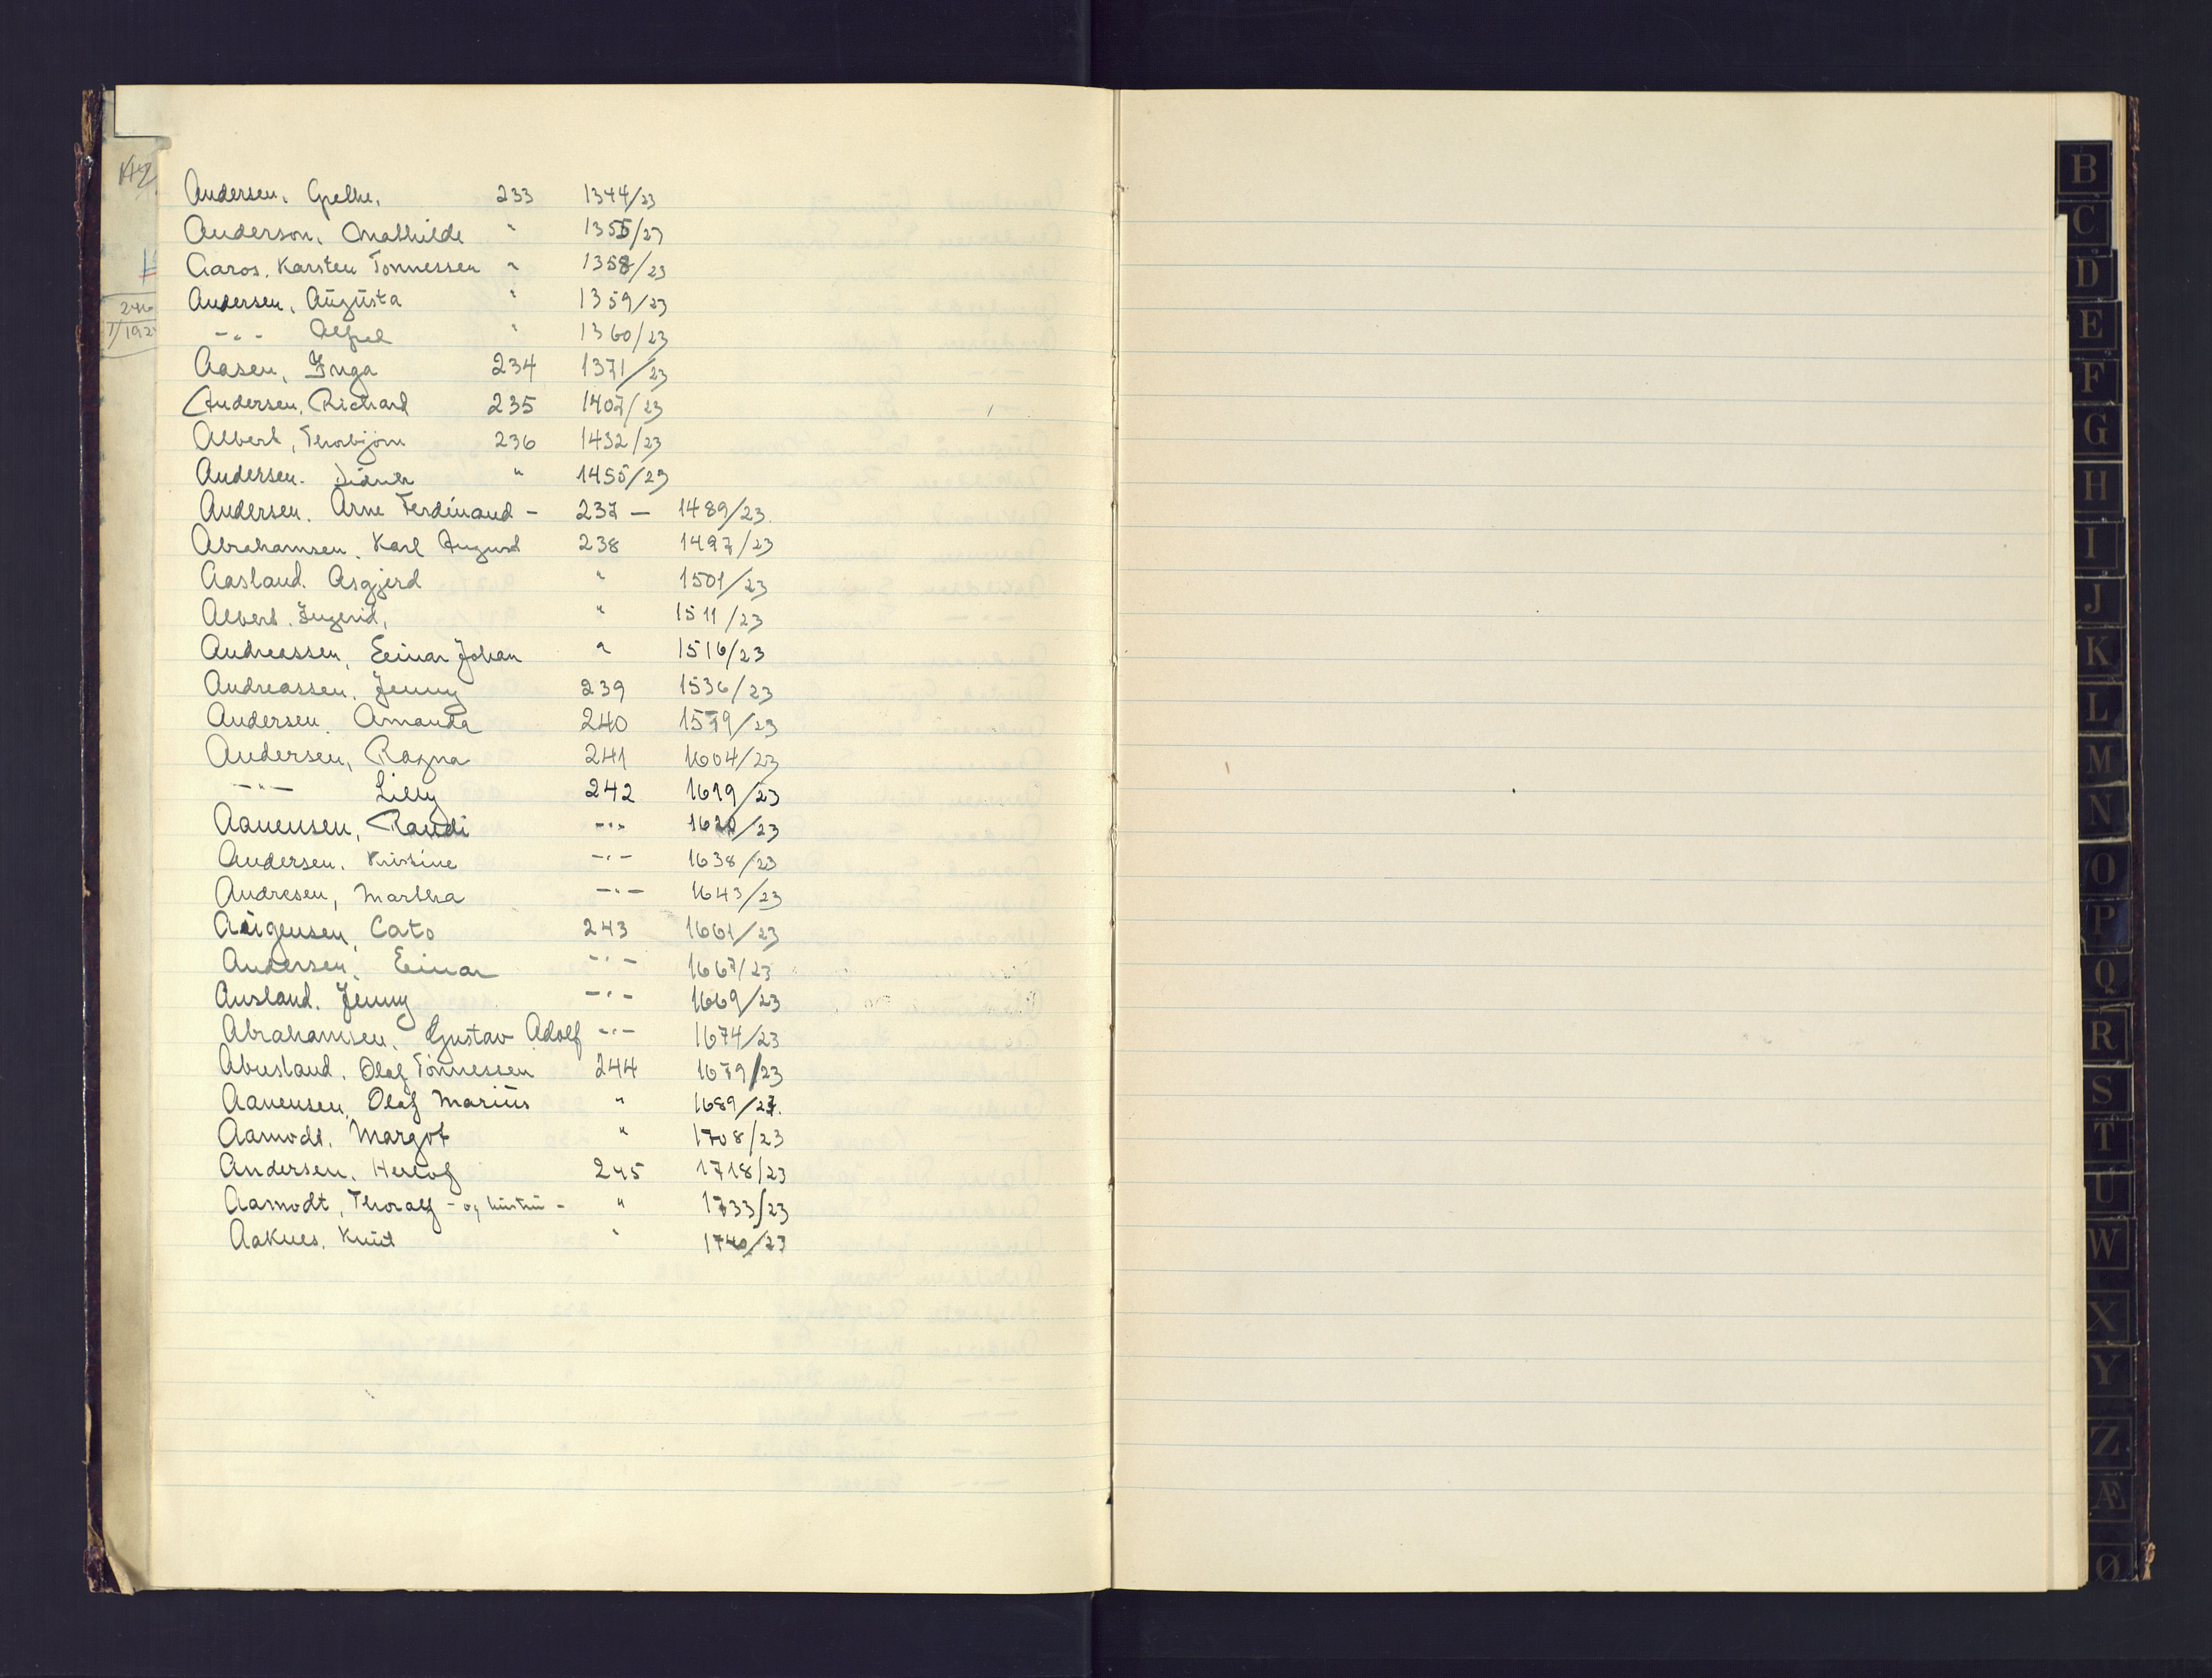 Andersen, Grethe, 233 1344/23
Anderson, Mathilde " 1355/23
Aaros, Karsten Tønnessen " 1358/23
Andersen, Augusta " 1359/23
-"- Alfred " 1360/23
Aasen, Inga 234 1371/23
Andersen, Richard 235 1407/23
Albert, Thorbjørn 236 1432/23
Andersen. " 1455/23
Andersen. Arne Ferdinand - 237 - 1489/23.
Abrahamsen. Karl August 238 1497/23
Aasland. Asgjerd " 1501/23
Albert. Ingerid, " 1511/23
Andreassen, Einar Johan " 1516/23
Andreassen. Jenny 239 1536/23
Andersen. Amanda 240 1579/23
Andersen, Ragna 241 1604/23
-"- Lilly 242 1619/23
Aanensen, Randi -"- 1620/23
Andersen. Kristine -"- 1638/23
Andresen, Martha -"- 1643/23
Cato 243 1661/23
Andersen. Einar -"- 1667/23
Ausland. Jenny -"- 1669/23
Abrahamsen. Gustav Adolf -"- 1674/23
Abusland. Olaf Tønnessen 244 1679/23
Aanensen, Olaf Marius " 1689/23.
Aamodt. Margot " 1708/23
Andersen. Herlof 245 1718/23
Aamodt, Thoralf - og hustru - " 1733/23
Aaknes. Knut " 1740/23
B
C
D
E
F
G
H
I
J
K
L
M
N
O
P
Q
R
S
T
U
W
X
Y
Z
Æ
Ø